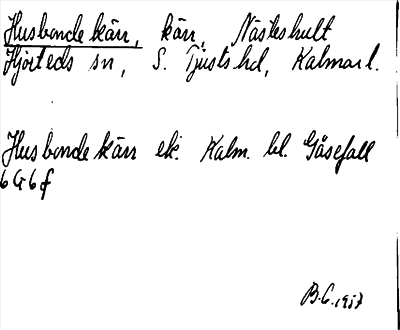 Husbonde kärr, kärr, Nästeshult
Hjorteds sn, S. Tjusts hd, Kalmar l.
Husbonde kärr ek. Kalm. bl. Gåsefall
6G6f
B.C. 1957